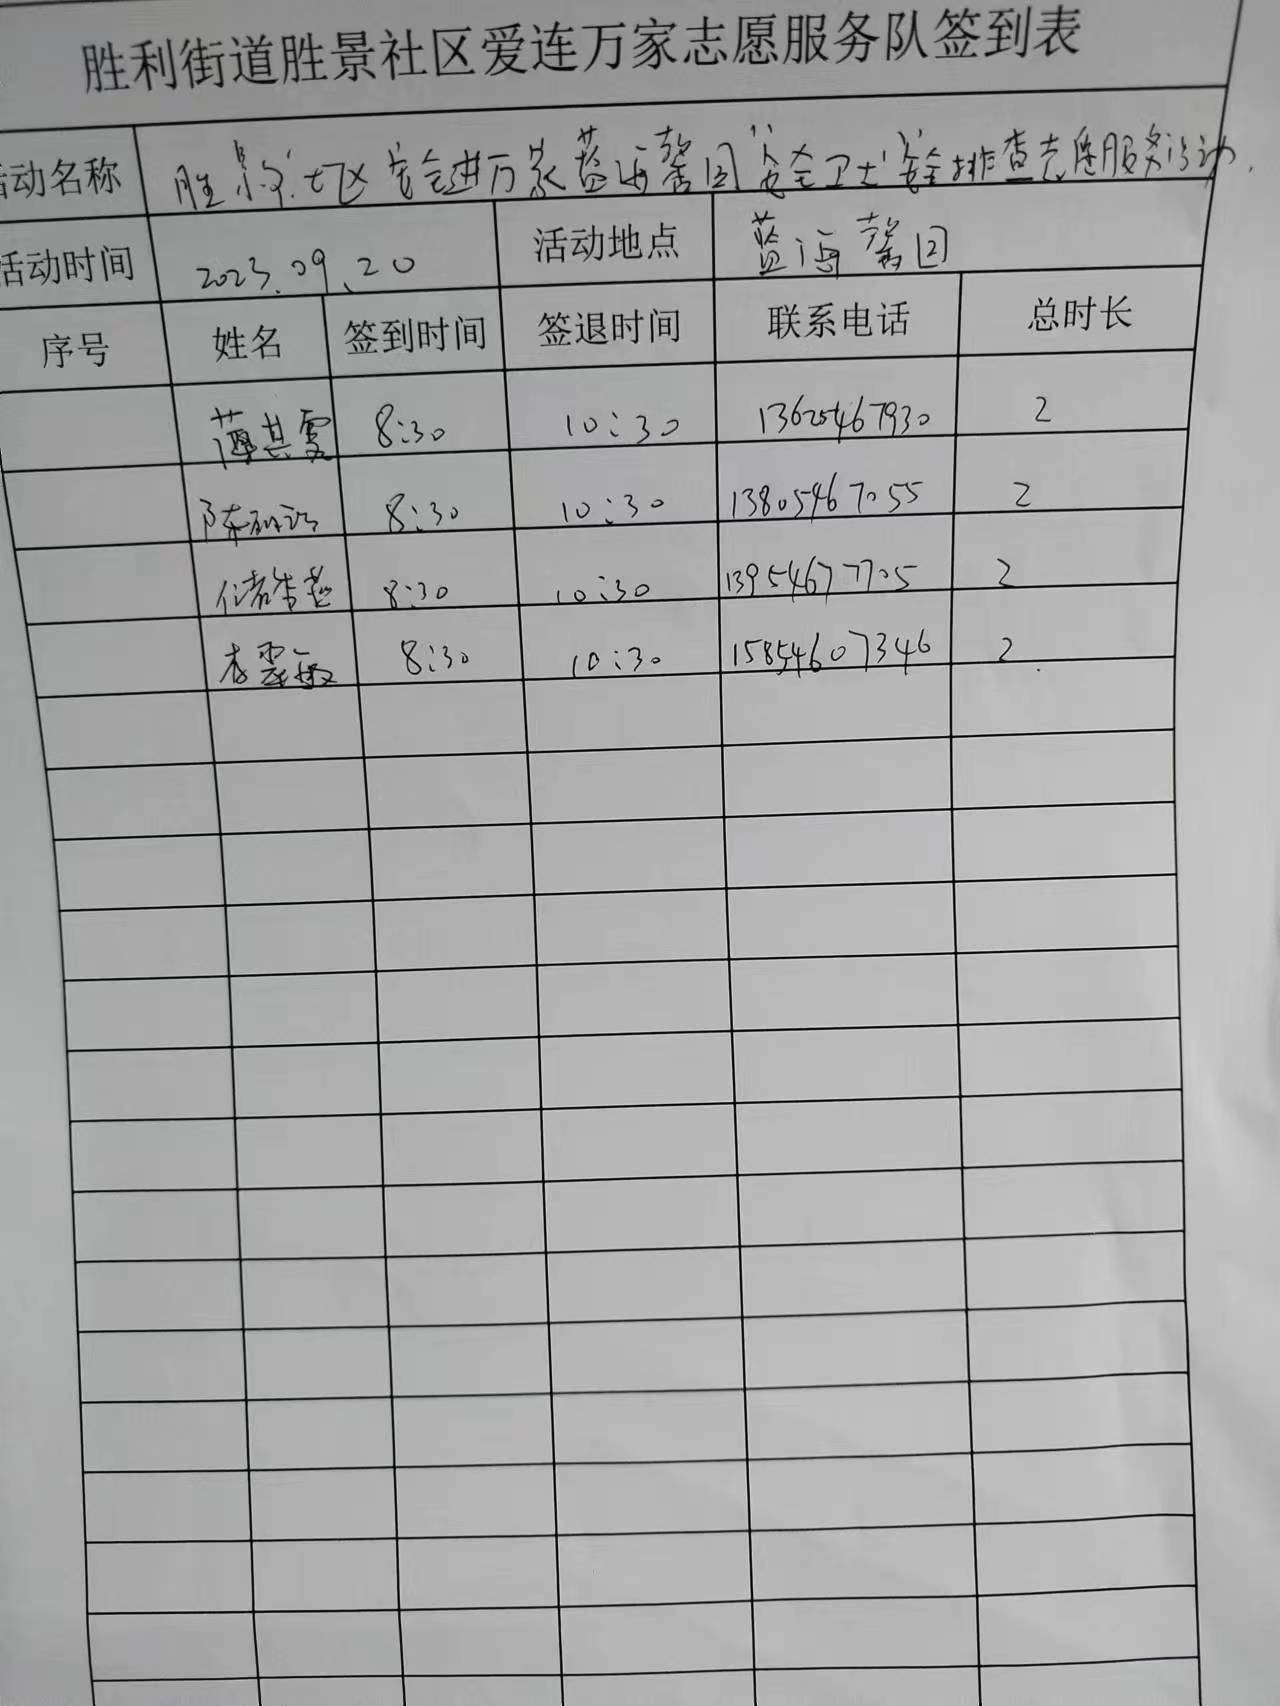 胜利街道胜景社区爱连万家志愿服务队签到表
活动名称 胜景社区安全进万家蓝海馨园"安全卫士"安全排查志愿服务活动.
活动时间 2023.09.20 活动地点 蓝海馨园
序号 姓名 签到时间 签退时间 联系电话 总时长
薄其雯 8:30 10:30 13625467930 2
陈 8:30 10:30 13805467055 2
8:30 10:30 13954677705 2
8:30 10:30 15854607346 2